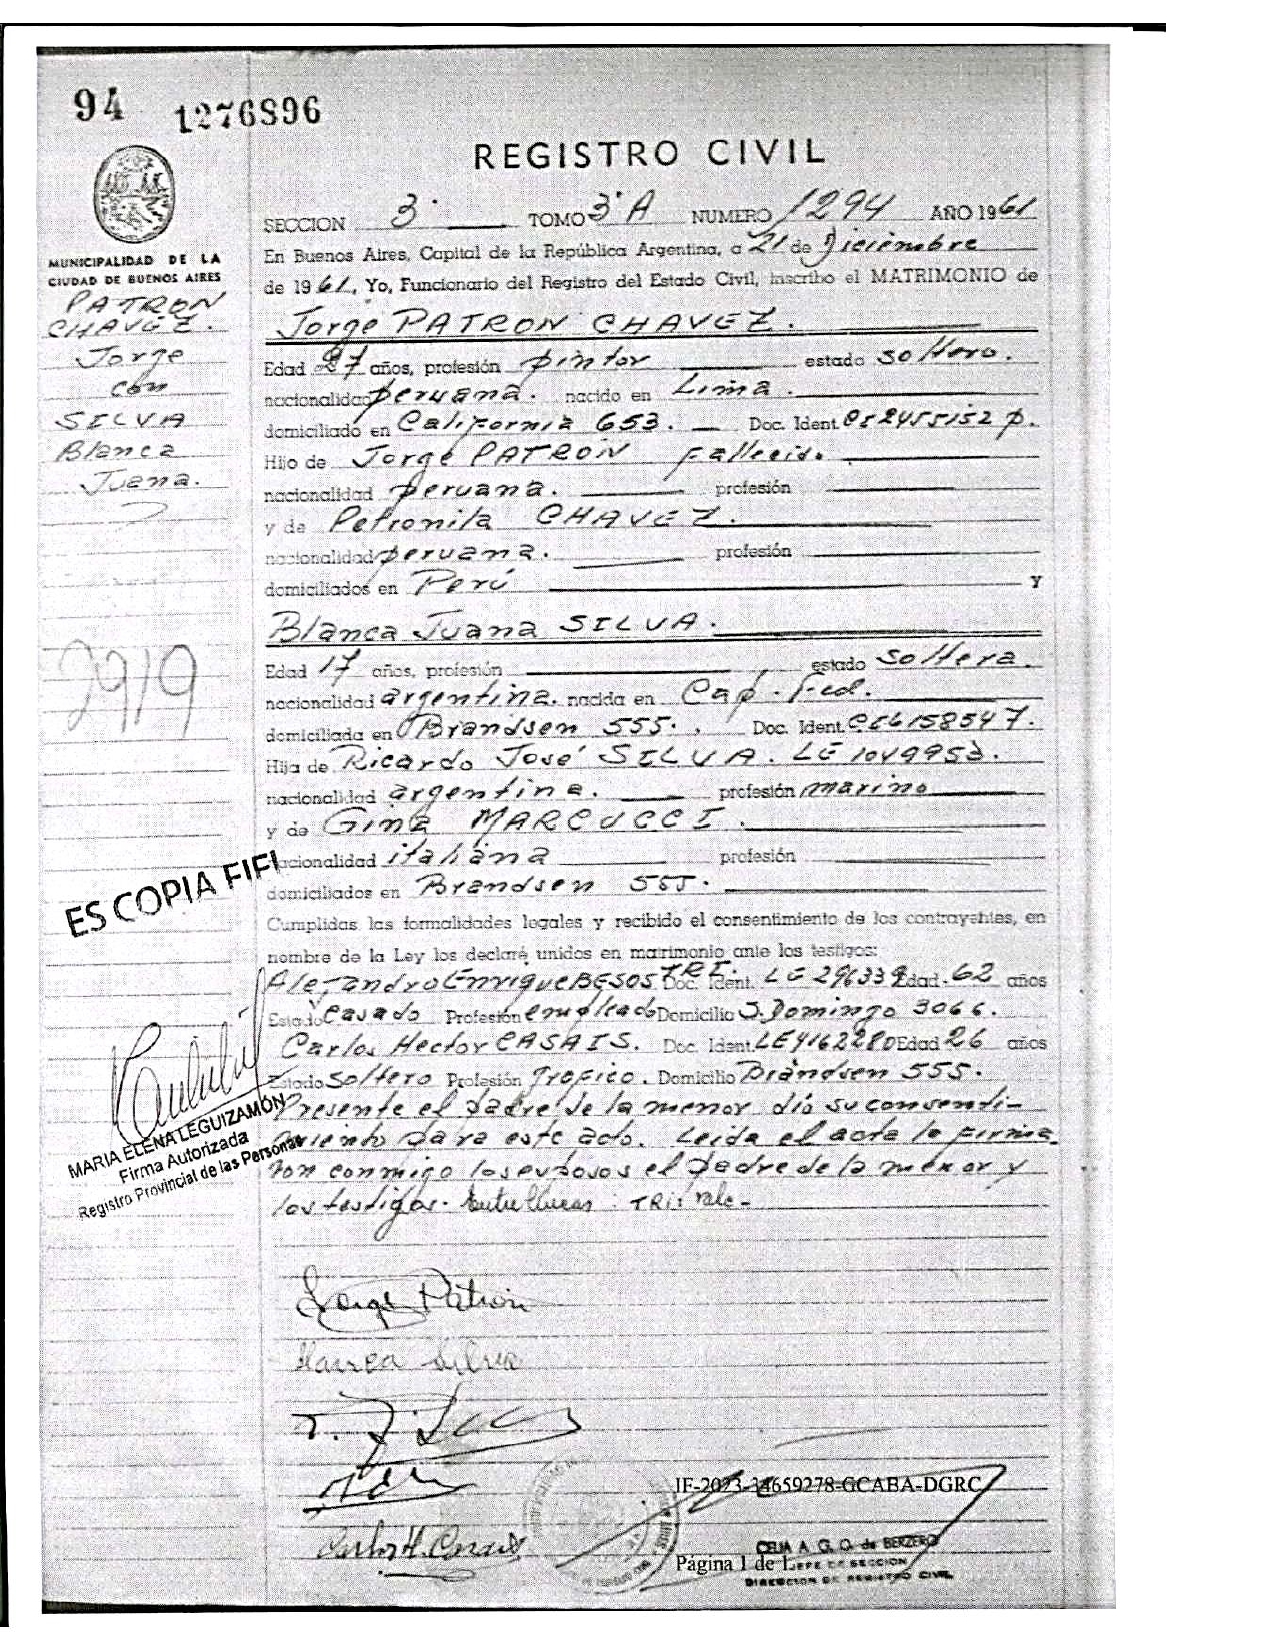 94 1276896
REGISTRO CIVIL
SECCION 3ª TOMO 3ª A NUMERO 1294 AÑO 1961
MUNICIPALIDAD DE LA
CIUDAD DE BUENOS AIRES
PATRON
CHAVEZ.
Jorge
con
SILVA
Blanca
Juana.
2919
En Buenos Aires, Capital de la República Argentina, a 21 de Diciembre
de 1961, Yo, Funcionario del Registro del Estado Civil, inscribo el MATRIMONIO de
Jorge PATRON CHAVEZ.
Edad 27 años, profesión pintor estado soltero.
nacionalidad peruana. nacido en Lima.
domiciliado en California 653. Doc. Ident. p.
Hijo de Jorge PATRON fallecido.
nacionalidad peruana. profesión
y de Petronila CHAVEZ.
nacionalidad peruana. profesión
domiciliados en Perú y
Blanca Juana SILVA.
Edad 17 años, profesión estado soltera.
nacionalidad argentina. nacida en Cap. Fed.
domiciliada en Brandsen 555. Doc. Ident. CI6158547.
Hija de Ricardo José SILVA. LE 1049953.
nacionalidad argentina. profesión marino
y de Gina MARCUCCI.
nacionalidad italiana profesión
domiciliados en Brandsen 555.
ES COPIA FIEL
Cumplidas las formalidades legales y recibido el consentimiento de los contrayentes, en
nombre de la Ley los declaré unidos en matrimonio ante los testigos:
Alejandro Enrique BESOSTRI. Doc. Ident. LE 296339 Edad 62 años
Estado Casado Profesión empleado Domicilio S. Domingo 3066.
Carlos Hector CASAIS. Doc. Ident. LE4162280 Edad 26 años
Estado soltero Profesión Domicilio Brandsen 555.
Presente el padre de la menor dio su consenti-
miento para este acto. Leida el acta la firma-
ron conmigo los esposos el padre de la menor y
los testigos. Entre lineas: TRI: vale-
MARIA ELENA LEGUIZAMÓN
Firma Autorizada
Registro Provincial de las Personas
Jorge Patrón
Blanca Silva
Carlos H. Casais
IF-2023-34659278-GCABA-DGRC
CELIA A. G. O. de BERZERO
Página 1 de 1
JEFE DE SECCION
DIRECCION DE REGISTRO CIVIL